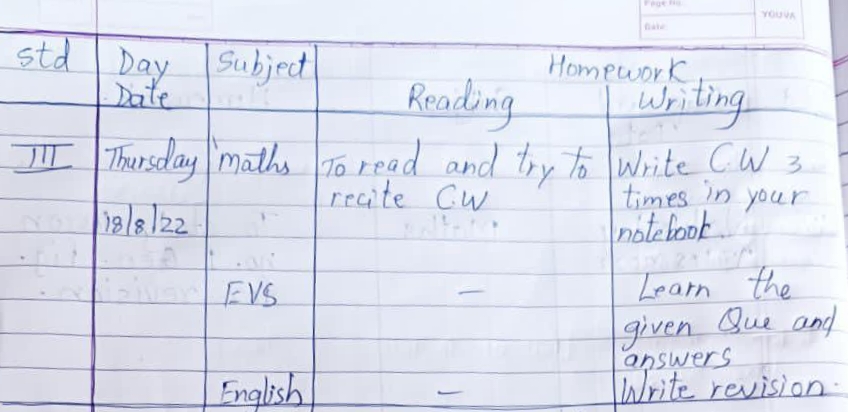 Page No.
Date:
YOUVA
Std Day Subject Homework
Date Reading Writing
III Thursday maths To read and try to Write CW 3
recite CW times in your
18/8/22 notebook.
EVS — Learn the
given Que and
answers
English — Write revision.